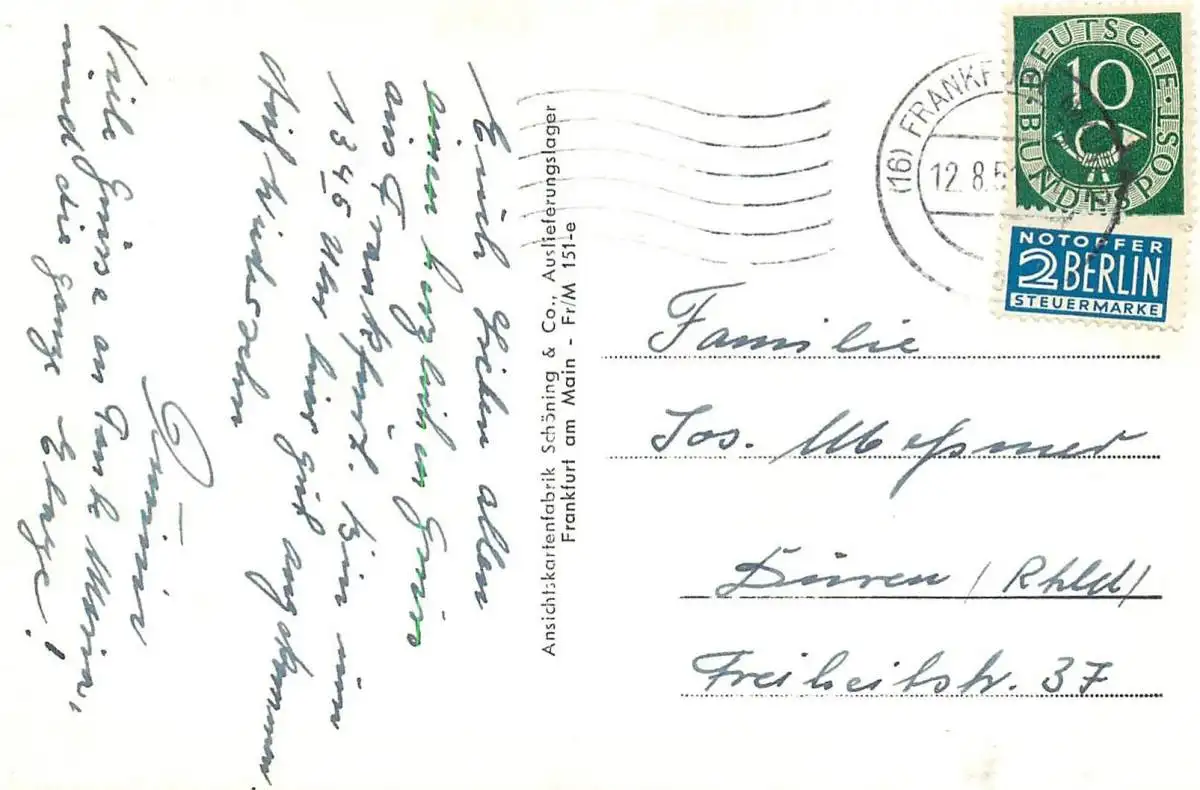 Euch lieben allen
einen herzlichen Gruss
aus Frankfurt. Bin um
1345 Uhr hier gut angekommen.
Auf Wiedersehn
Viele Grüsse an Tante Maria,
und die ganze Etage!
Ansichtskartenfabrik Schöning & Co., Auslieferungslager
Frankfurt am Main - Fr/M 151-e
(16) FRANKFU
12.8.5
DEUTSCHE BUNDESPOST
10
NOTOPFER
2 BERLIN
STEUERMARKE
Familie
Jos. Meßmer
Düren / Rhld /
Freiheitstr. 37